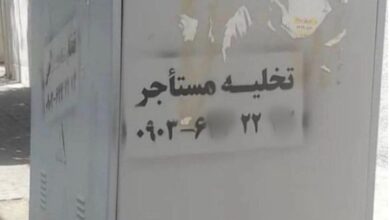 تخلیه مستأجر
۰۹۰۳-۶ ۲۲